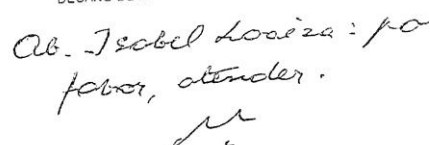 Ab. Isabel Loaiza: po
favor, atender.